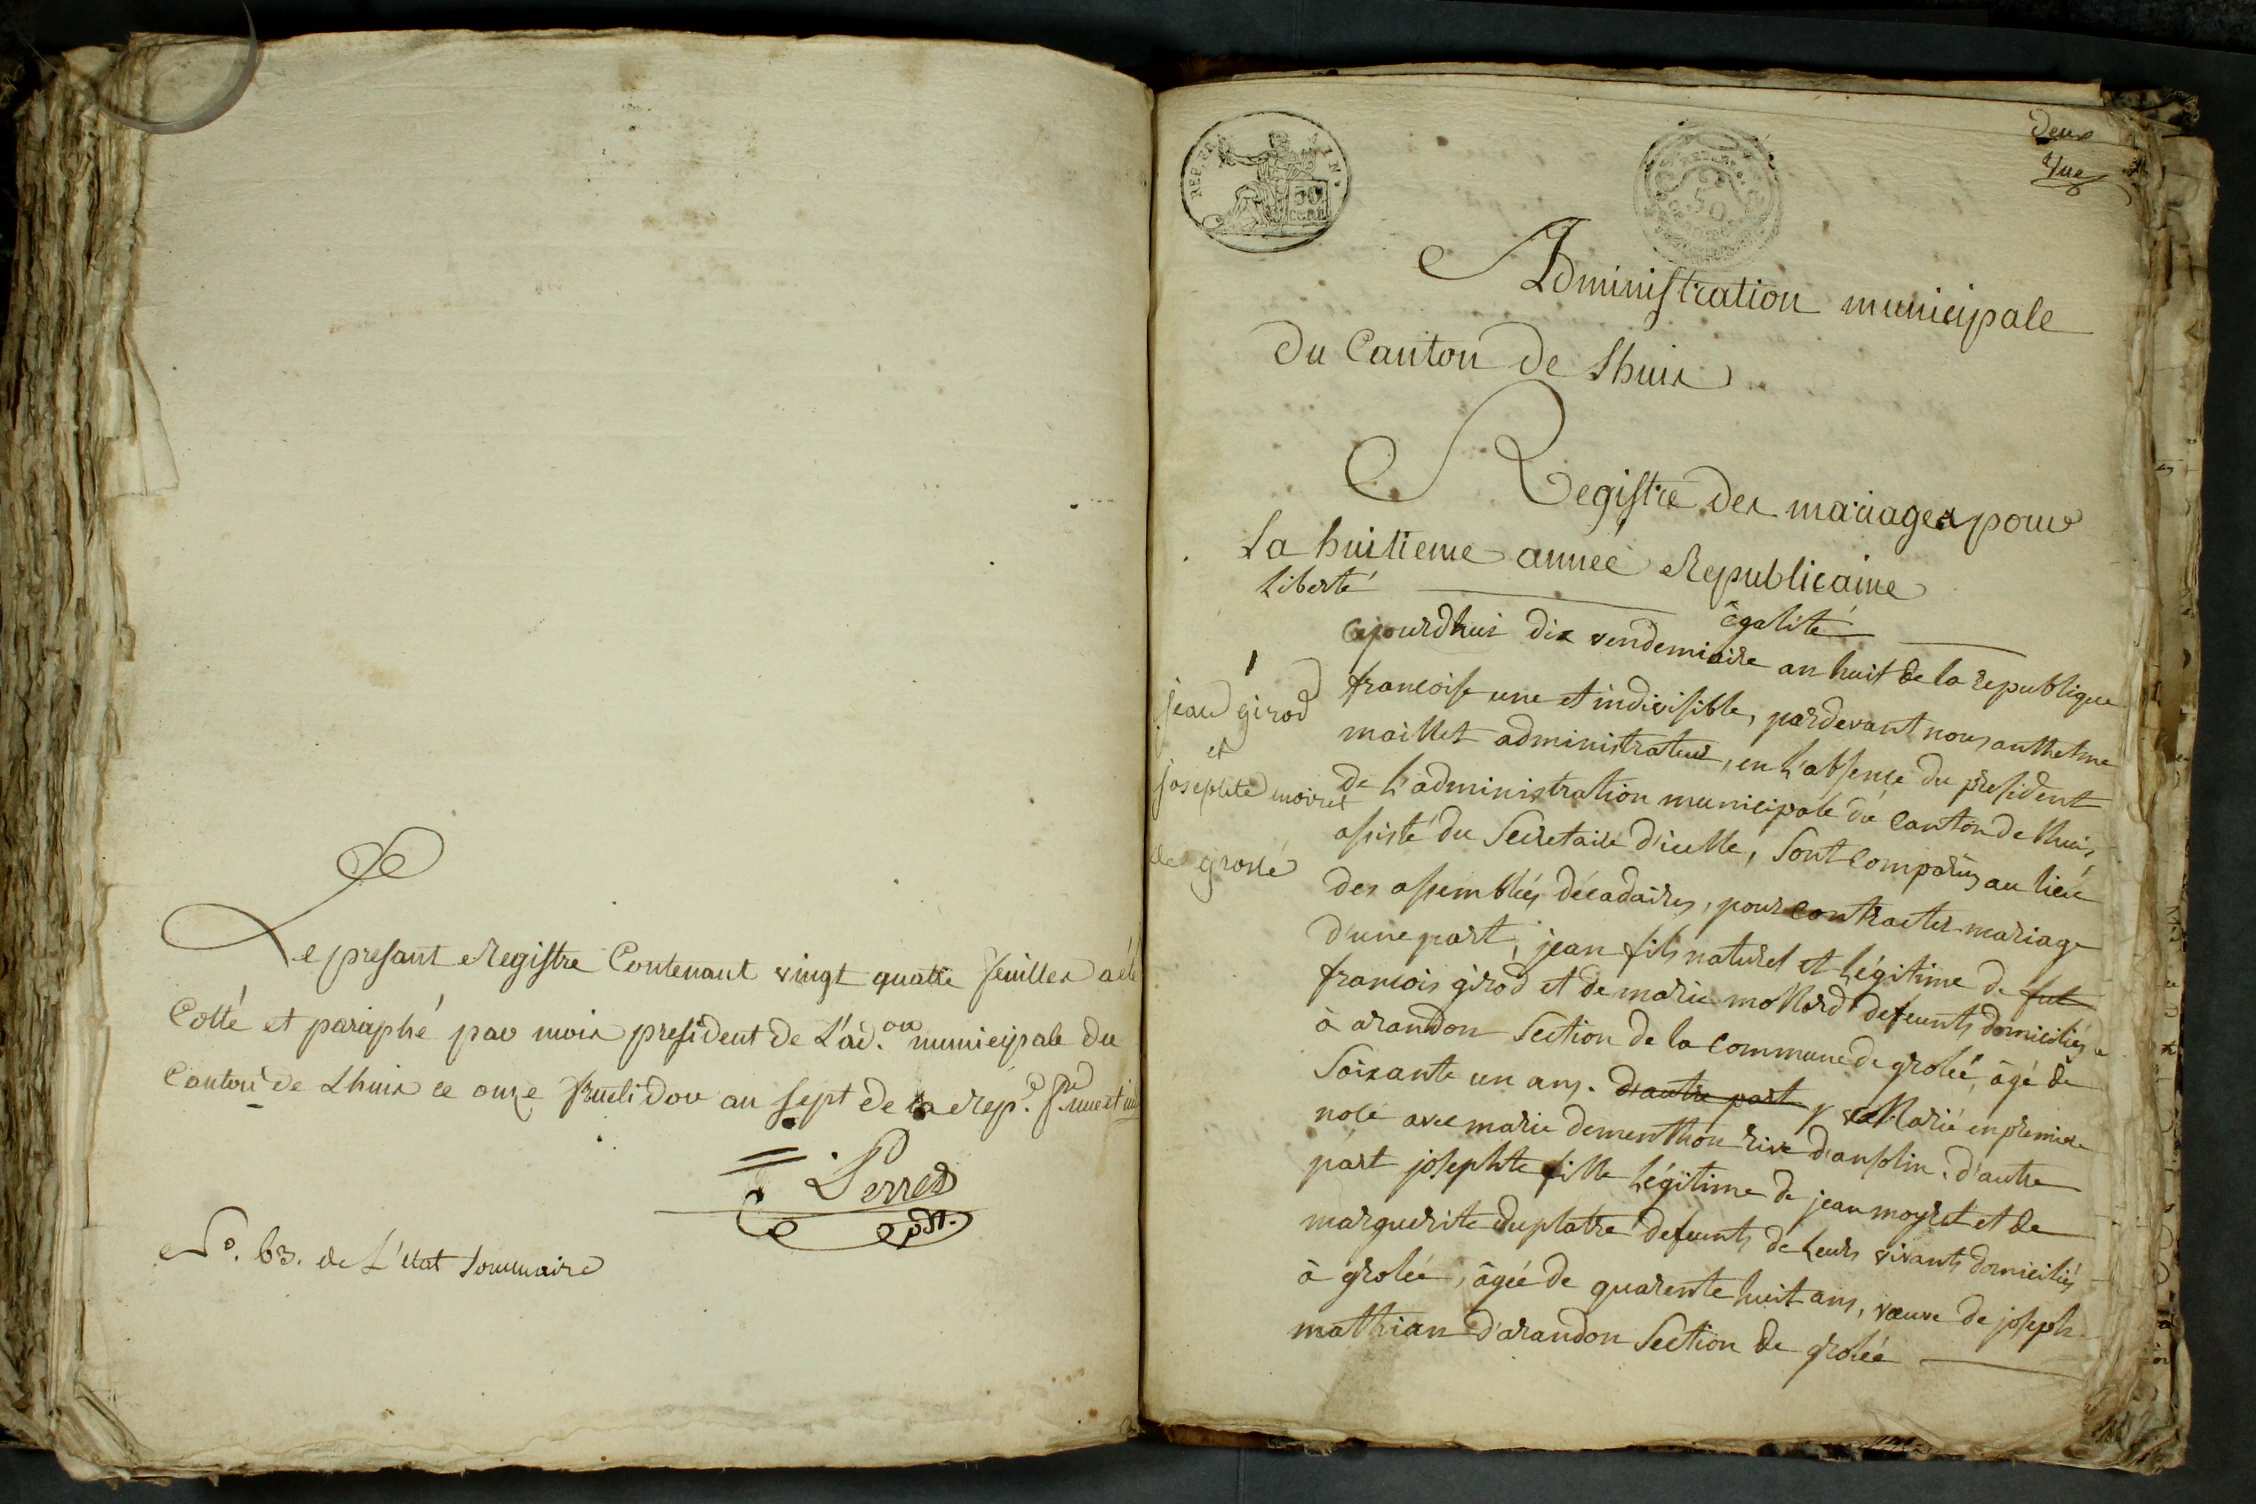 Le present Registre Contenant vingt quatre feuilles a été
Cotté et paraphé par moix president de L'ad.on municipale du
Canton de Lhuis ce onze fructidor an sept de la rep.e f.se une et ind
Perret
pdt.
No. 63. de L'etat sommaire
REP. FRA
50
CENT
50
deux
Administration municipale
Du Canton de Lhuis
Registre des mariages pour
La huitieme année Republicaine
Liberté
égalité
Cejourdhui dix vendemiaire an huit de la republique
francoise une et indivisible, pardevant nous anthelme
maillet administrateur, en l'absence du president
de l'administration municipale du Canton de lhuis,
assisté du Secretaire d'icelle, Sont Comparus au lieu
des assemblées décadaires, pour contracter mariage
d'une part, jean fils naturel et légitime de fut
francois girod et de marie mollard defeunts domiciliés
à arandon Section de la Commune de groleé, âgé de
Soixante un ans. d'autre part y Marié en premiere
nose avec marie dementhon rive d'ansolin. d'autre
part josephte fille légitime de jean moyret et de
marguerite duplatre defeunts de leurs vivants domiciliés
à groleé, âgée de quarente huit ans, vauve de joseph
mathian d'arandon Section de groleé
1
jean girod
et
josephte moiret
de groslé